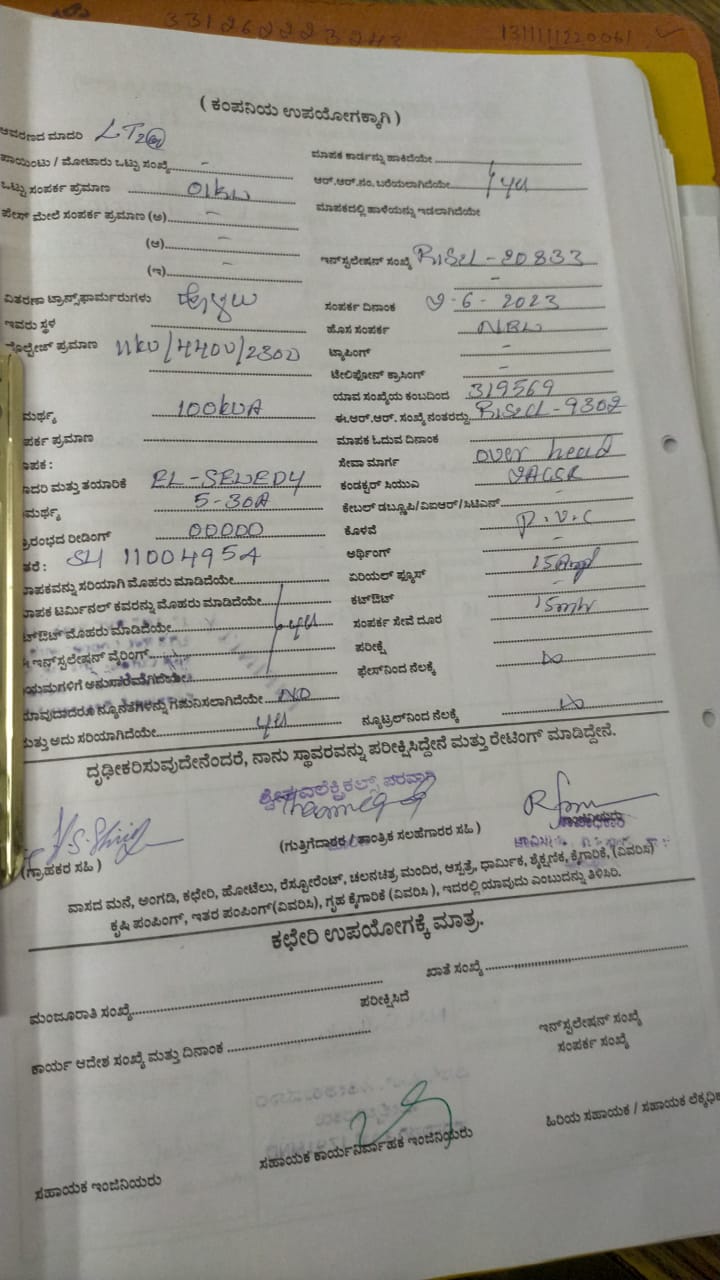 331262223243
1311111220061
( ಕಂಪನಿಯ ಉಪಯೋಗಕ್ಕಾಗಿ )
ಆವರಣದ ಮಾದರಿ LT2(a)
ಪಾಯಿಂಟು / ಮೋಟಾರು ಒಟ್ಟು ಸಂಖ್ಯೆ -
ಒಟ್ಟು ಸಂಪರ್ಕ ಪ್ರಮಾಣ 01kw
ಪೇಸ್ ಮೇಲೆ ಸಂಪರ್ಕ ಪ್ರಮಾಣ (ಅ) -
(ಆ) -
(ಇ) -
ವಿತರಣಾ ಟ್ರಾನ್ಸ್‌ಫಾರ್ಮರುಗಳು
ಇವರು ಸ್ಥಳ
ವೋಲ್ಟೇಜ್ ಪ್ರಮಾಣ 11kv/440V/230V
ಮರ್ಥ್ಯ 100kVA
ಪರ್ಕ ಪ್ರಮಾಣ
ಾಪಕ :
ಾದರಿ ಮತ್ತು ತಯಾರಿಕೆ EL-SEWEDY
ಮರ್ಥ್ಯ 5-30A
್ರಾರಂಭದ ರೀಡಿಂಗ್ 00000
ತರೆ : SH 11004954
ಾಪಕವನ್ನು ಸರಿಯಾಗಿ ಮೊಹರು ಮಾಡಿದೆಯೇ
ಾಪಕ ಟರ್ಮಿನಲ್ ಕವರನ್ನು ಮೊಹರು ಮಾಡಿದೆಯೇ
ಟ್‌ಔಟ್ ಮೊಹರು ಮಾಡಿದೆಯೇ yes
ಇನ್‌ಸ್ಟಲೇಷನ್ ವೈರಿಂಗ್
ಯಮಗಳಿಗೆ ಅನುಸಾರವಾಗಿದೆಯೇ
ಾವುದಾದರೂ ನ್ಯೂನತೆಗಳನ್ನು ಗಮನಿಸಲಾಗಿದೆಯೇ NO
ಮತ್ತು ಅದು ಸರಿಯಾಗಿದೆಯೇ yes
ಮಾಪಕ ಕಾರ್ಡನ್ನು ಹಾಕಿದೆಯೇ
ಆರ್.ಆರ್.ನಂ. ಬರೆಯಲಾಗಿದೆಯೇ yes
ಮಾಪಕದಲ್ಲಿ ಹಾಳೆಯನ್ನು ಇಡಲಾಗಿದೆಯೇ
ಇನ್‌ಸ್ಟಲೇಷನ್ ಸಂಖ್ಯೆ RISEL-20833
-
ಸಂಪರ್ಕ ದಿನಾಂಕ 9-6-2023
ಹೊಸ ಸಂಪರ್ಕ NEW
ಟ್ಯಾಪಿಂಗ್ -
ಟೆಲಿಫೋನ್ ಕ್ರಾಸಿಂಗ್ -
ಯಾವ ಸಂಖ್ಯೆಯ ಕಂಬದಿಂದ 319569
ಈ.ಆರ್.ಆರ್. ಸಂಖ್ಯೆ ನಂತರದ್ದು RISEL-9302
ಮಾಪಕ ಓದುವ ದಿನಾಂಕ
ಸೇವಾ ಮಾರ್ಗ over head
ಕಂಡಕ್ಟರ್ ಸಿಯುಎ
ಕೇಬಲ್ ಡಬ್ಲೂಪಿ/ವಿಐಆರ್/ಸಿಟಿಎಸ್ -
ಕೊಳವೆ P.V.C
ಅರ್ಥಿಂಗ್ -
ಏರಿಯಲ್ ಫ್ಯೂಸ್ 15Amp
ಕಟ್‌ಔಟ್ -
ಸಂಪರ್ಕ ಸೇವೆ ದೂರ 15mtr
ಪರೀಕ್ಷೆ
ಫೇಸ್‌ನಿಂದ ನೆಲಕ್ಕೆ ∞
ನ್ಯೂಟ್ರಲ್‌ನಿಂದ ನೆಲಕ್ಕೆ ∞
ದೃಢೀಕರಿಸುವುದೇನೆಂದರೆ, ನಾನು ಸ್ಥಾವರವನ್ನು ಪರೀಕ್ಷಿಸಿದ್ದೇನೆ ಮತ್ತು ರೇಟಿಂಗ್ ಮಾಡಿದ್ದೇನೆ.
(ಗ್ರಾಹಕರ ಸಹಿ )
(ಗುತ್ತಿಗೆದಾರರ / ತಾಂತ್ರಿಕ ಸಲಹೆಗಾರರ ಸಹಿ )
ವಾಸದ ಮನೆ, ಅಂಗಡಿ, ಕಛೇರಿ, ಹೋಟೆಲು, ರೆಸ್ಟೋರೆಂಟ್, ಚಲನಚಿತ್ರ ಮಂದಿರ, ಆಸ್ಪತ್ರೆ, ಧಾರ್ಮಿಕ, ಶೈಕ್ಷಣಿಕ, ಕೈಗಾರಿಕೆ, (ವಿವರಿಸಿ)
ಕೃಷಿ ಪಂಪಿಂಗ್, ಇತರ ಪಂಪಿಂಗ್(ವಿವರಿಸಿ), ಗೃಹ ಕೈಗಾರಿಕೆ (ವಿವರಿಸಿ ), ಇದರಲ್ಲಿ ಯಾವುದು ಎಂಬುದನ್ನು ತಿಳಿಸಿರಿ.
ಕಛೇರಿ ಉಪಯೋಗಕ್ಕೆ ಮಾತ್ರ.
ಮಂಜೂರಾತಿ ಸಂಖ್ಯೆ
ಖಾತೆ ಸಂಖ್ಯೆ
ಪರೀಕ್ಷಿಸಿದೆ
ಕಾರ್ಯ ಆದೇಶ ಸಂಖ್ಯೆ ಮತ್ತು ದಿನಾಂಕ
ಇನ್‌ಸ್ಟಲೇಷನ್ ಸಂಖ್ಯೆ
ಸಂಪರ್ಕ ಸಂಖ್ಯೆ
ಸಹಾಯಕ ಇಂಜಿನಿಯರು
ಸಹಾಯಕ ಕಾರ್ಯನಿರ್ವಾಹಕ ಇಂಜಿನಿಯರು
ಹಿರಿಯ ಸಹಾಯಕ / ಸಹಾಯಕ ಲೆಕ್ಕಧಿ